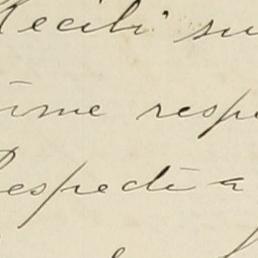 Recibi su
time resp
Respecto a